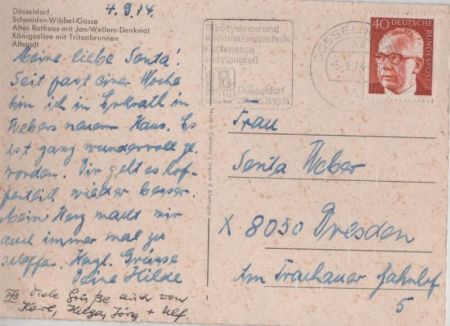 Düsseldorf
Schneider-Wibbel-Gasse
Altes Rathaus mit Jan-Wellem-Denkmal
Königsallee mit Tritonbrunnen
Altstadt
4.9.74
Meine liebe Santa!
Seit fast einer Woche
bin ich in Erkrath in
Webers neuem Haus. Es
ist ganz wundervoll ge-
worden. Dir geht es hof-
fentlich wieder besser.
Mein Herz macht mir
auch immer mal zu
schaffen. Herzl. Grüsse
Deine Hilde
Viele Grüße auch von
Karl, Helga, Jörg + Ulf
systeme und
informationstechnik
Kongreß
Düsseldorf
9.1974
DÜSSEL
-5.9.74
40
DEUTSCHE
BUNDESPOST
Frau
Santa Weber
X 8030 Dresden
Am Trachauer Bahnhof
5